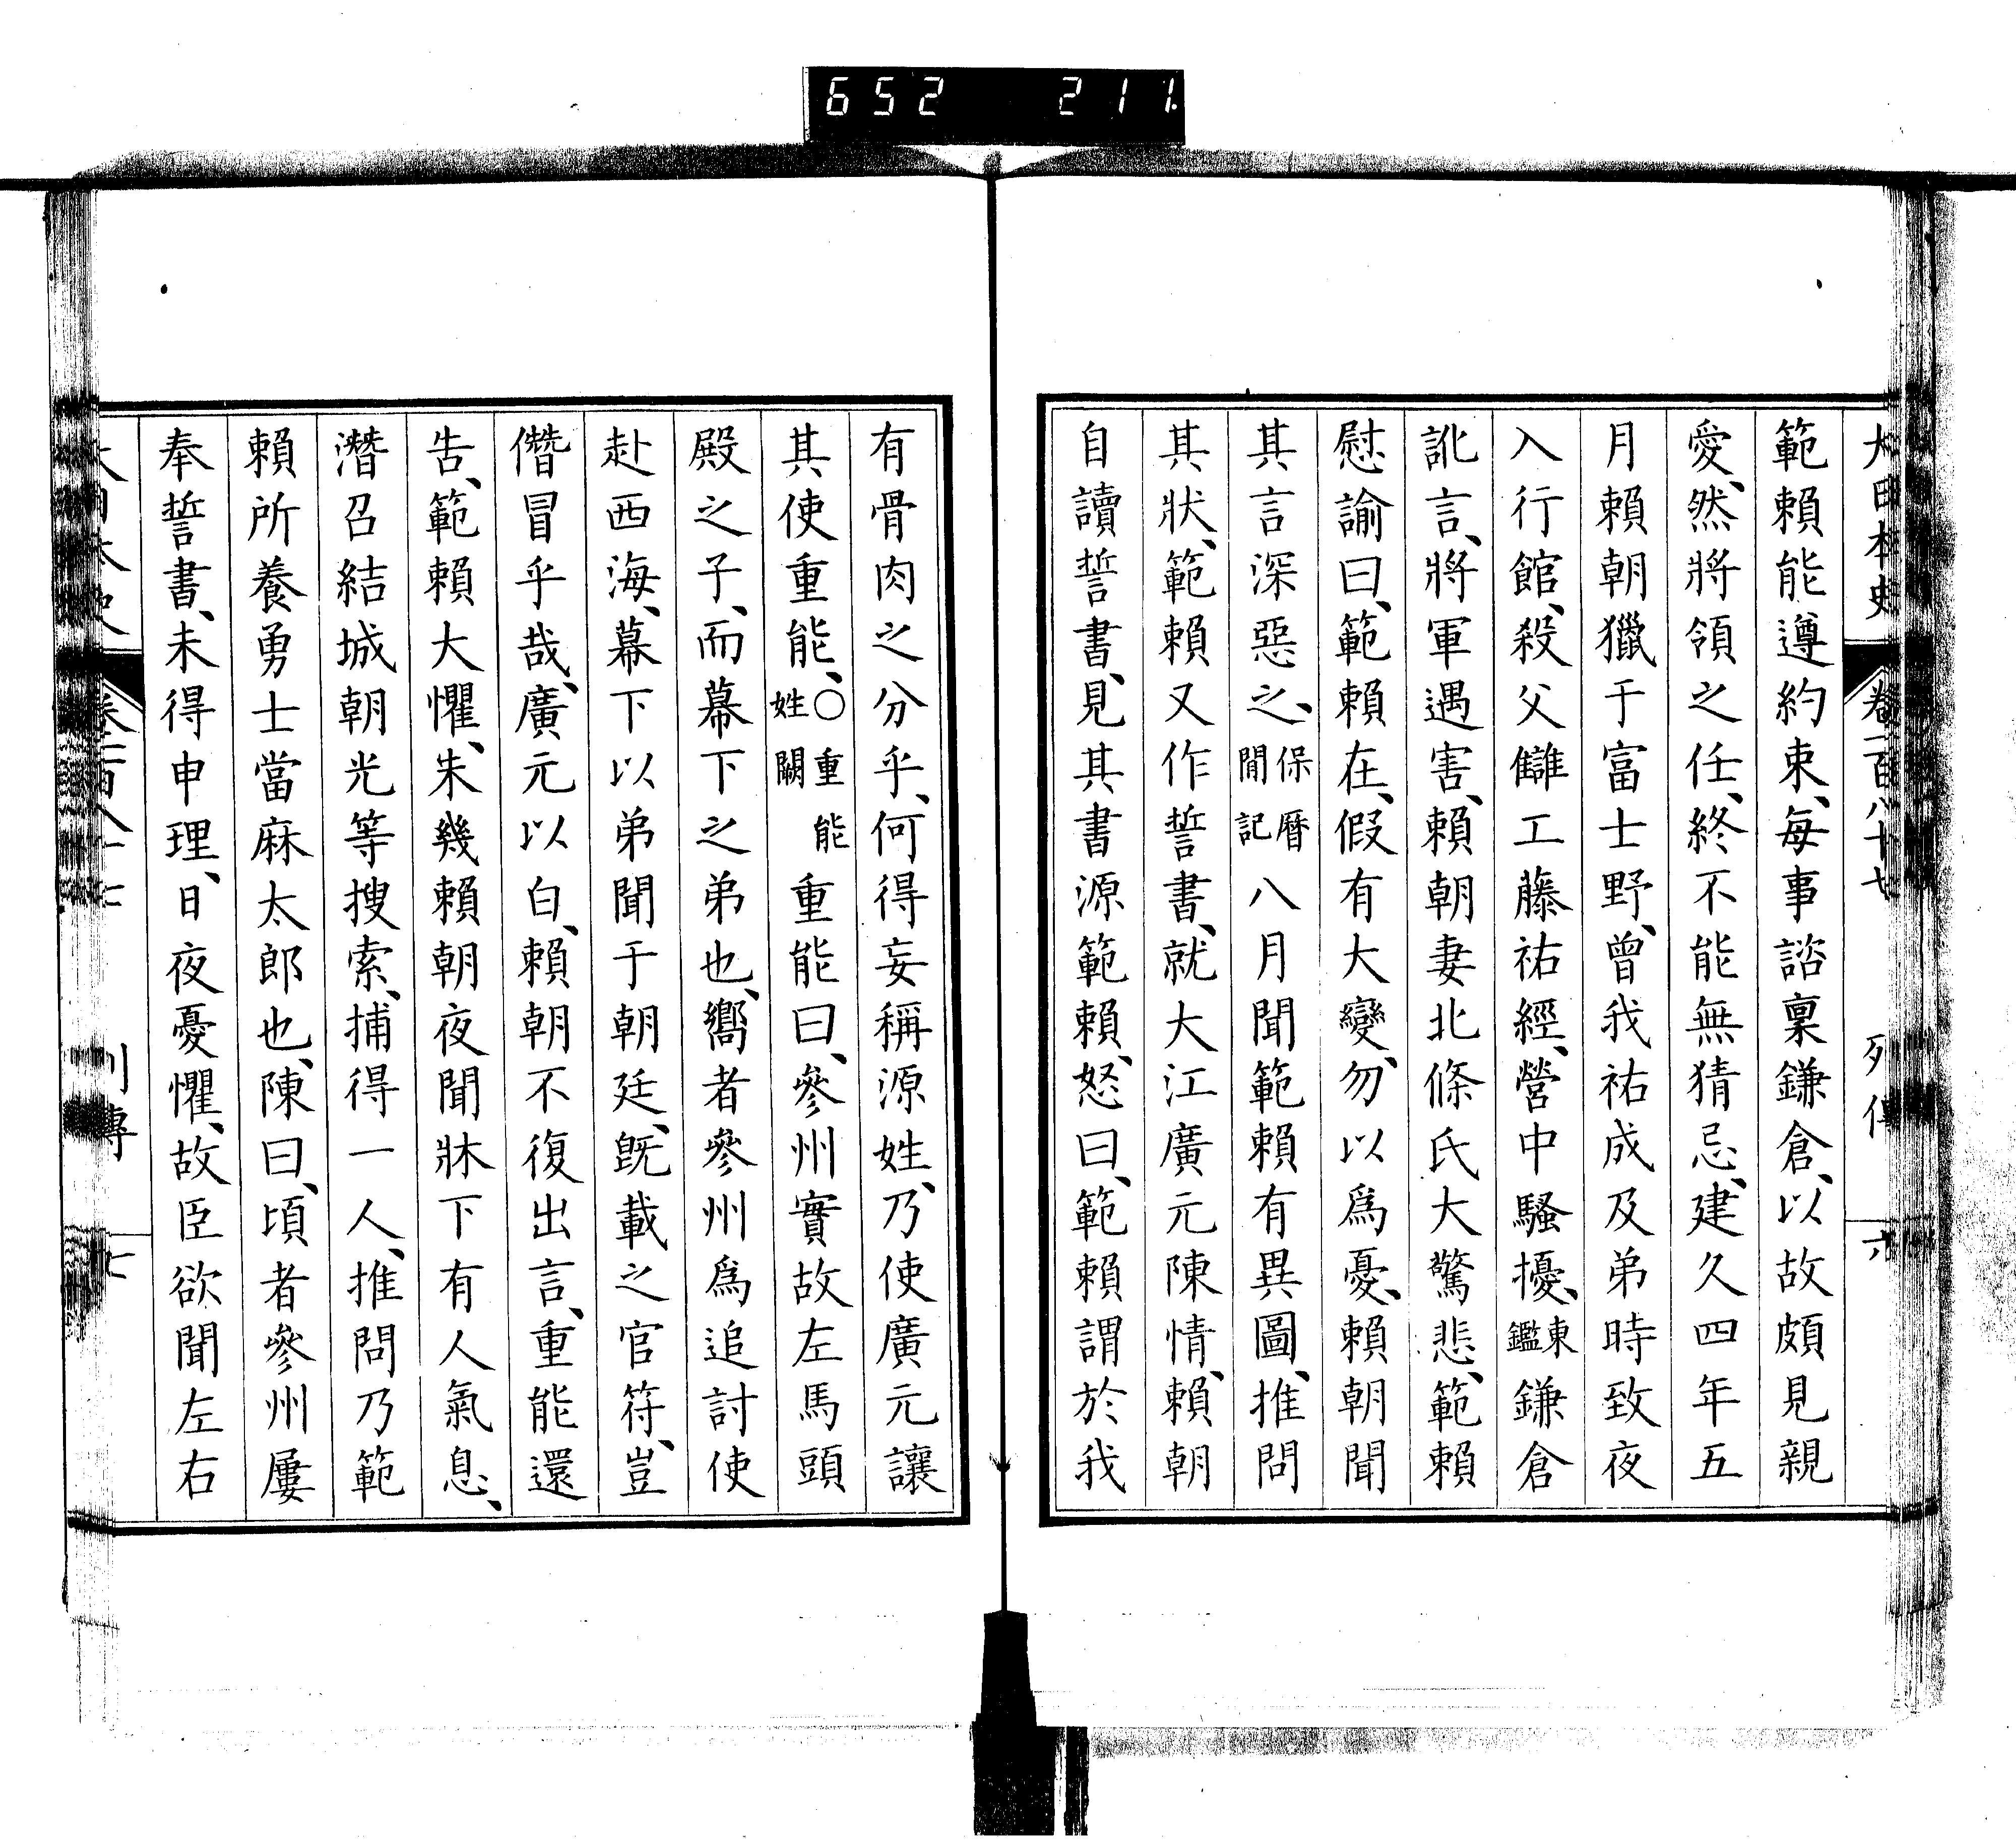 652 211
大日本史 卷一百八十七 列傳 六
範賴能遵約束、每事諮稟鎌倉、以故頗見親
愛、然將領之任、終不能無猜忌、建久四年五
月賴朝獵于富士野、曾我祐成及弟時致夜
入行館、殺父讎工藤祐經、營中騷擾、東鑑鎌倉
訛言、將軍遇害、賴朝妻北條氏大驚悲、範賴
慰諭曰、範賴在、假有大變、勿以爲憂、賴朝聞
其言深惡之、保曆間記八月聞範賴有異圖、推問
其狀、範賴又作誓書、就大江廣元陳情、賴朝
自讀誓書、見其書源範賴、怒曰、範賴謂於我
有骨肉之分乎、何得妄稱源姓、乃使廣元讓
其使重能、○重能姓闕重能曰、參州實故左馬頭
殿之子、而幕下之弟也、嚮者參州爲追討使
赴西海、幕下以弟聞于朝廷、既載之官符、豈
僭冒乎哉、廣元以白、賴朝不復出言、重能還
告、範賴大懼、未幾賴朝夜聞牀下有人氣息、
潛召結城朝光等搜索、捕得一人、推問乃範
賴所養勇士當麻太郎也、陳曰、頃者參州屢
奉誓書、未得申理、日夜憂懼、故臣欲聞左右
列傳 七